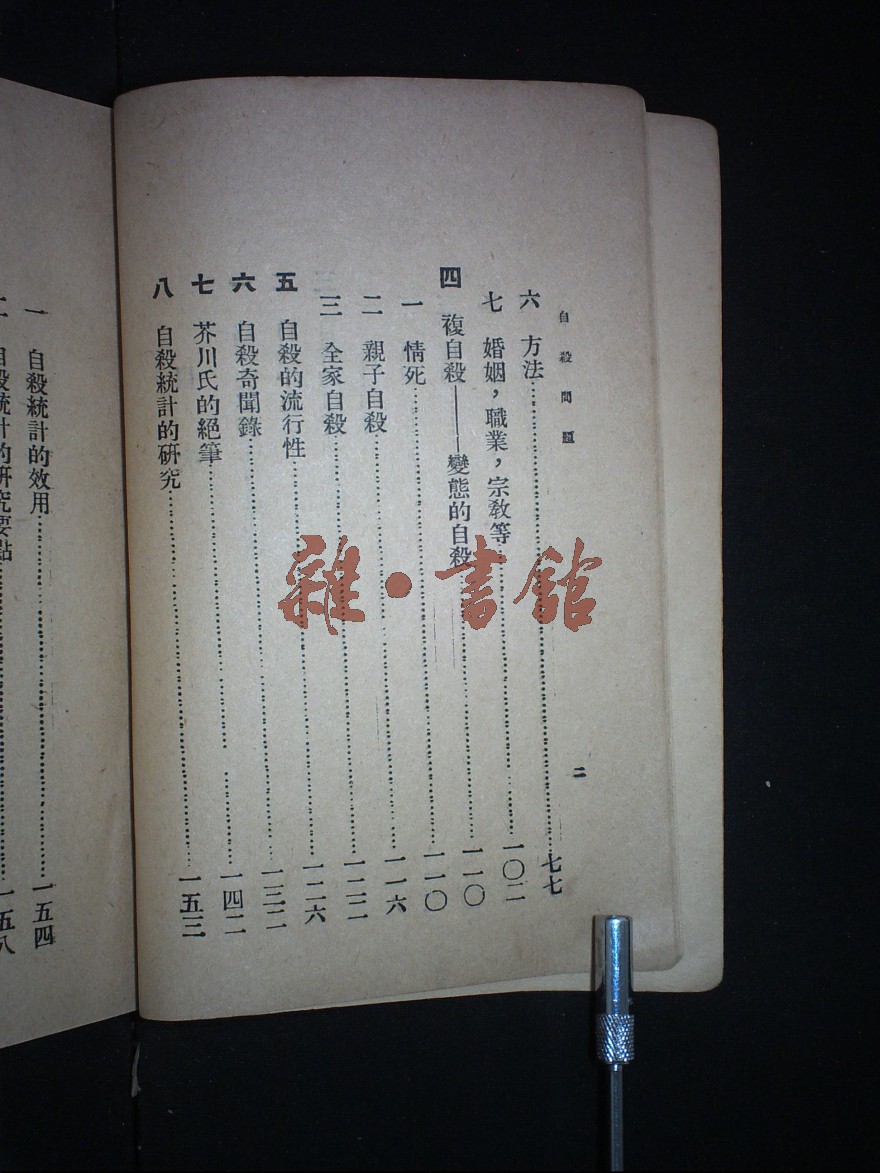 自殺問題
二
六 方法……七七
七 婚姻,職業,宗教等……一〇二
四 複自殺——變態的自殺……一一〇
一 情死……一一〇
二 親子自殺……一一六
三 全家自殺……一二二
五 自殺的流行性……一二六
六 自殺奇聞錄……一三二
七 芥川氏的絕筆……一四二
八 自殺統計的研究……一五三
一 自殺統計的效用……一五四
二 自殺統計的研究要點……一五八
雜·書館